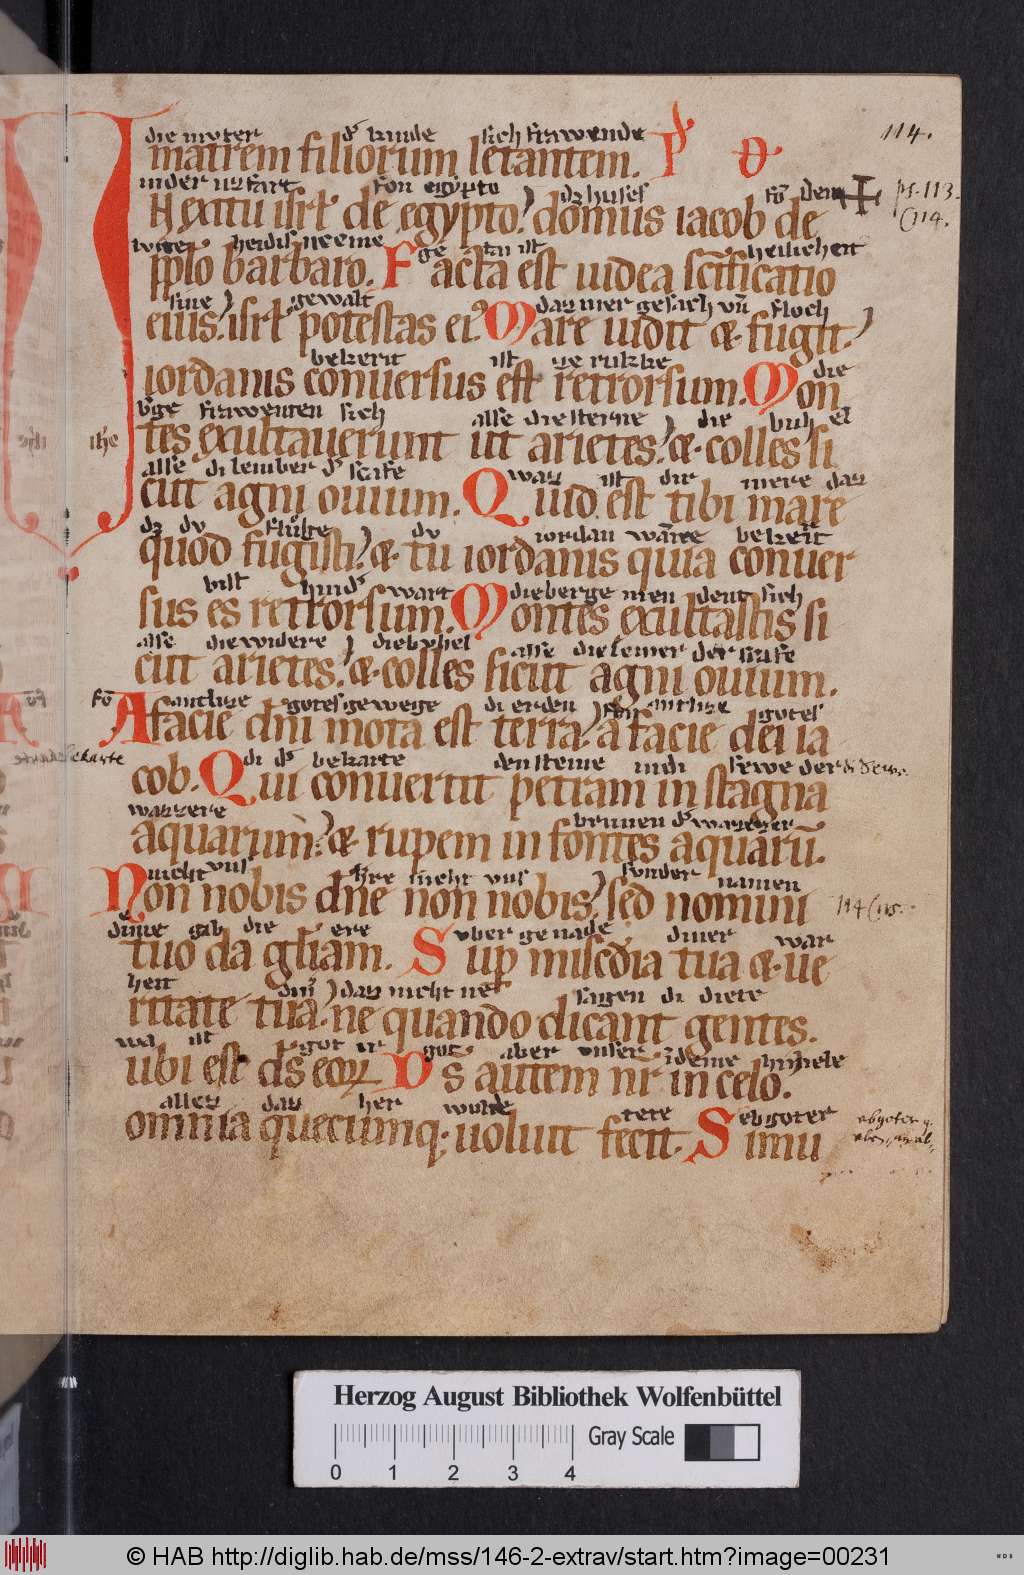 114.
die muter d' kinde sich frawende
matrem filiorum letantem. P
in der uz fart fon egypto dz huses fō dem
N exitu isrł de egypto: domus iacob de
ps. 113.
(114.
heidisneeme
pplo barbaro. Facta est iudea scīficatio
ge tn ist heilicheit
sine gewalt daz mer gesach vn̄ floch
eius: isrł potestas ei⁹. Mare uidit & fugit:
bekerit ist ze rukke die
iordanis conuersus est retrorsum. Mon
b'ge frawenten sich alse die sterne die buh el
tes exultauerunt ut arietes: & colles si
alse di lember d' scafe waz ist dir mere daz
cut agni ouium. Quid est tibi mare
dz du fluhte du iordan wāre bekerit
quod fugisti: & tu iordanis quia conuer
bist hind' wart die berge men dent sich
sus es retrorsum. Montes exultastis si
alse die widere die buhel alse die lemer der scafe
cut arietes: & colles sicut agni ouium.
fō antluze gotes gewege di erden fon antluze gotes
A facie dn̄i mota est terra: a facie dei ia
di d' bekarte den steine in di sewe der
cob. Qui conuertit petram in stagna
wazzere brunen d' wazzer
aquarum: & rupem in fontes aquarū.
nicht vns hre nicht vns sunder namen
Non nobis dn̄e non nobis: sed nomini
114 (115.
dime gib die ere vber genade diner war
tuo da głiam. Sup miscdia tua & ue
heit daz nicht sagen di diete
ritate tua: ne quando dicant gentes.
wa ist got ir got aber vnser ideme himele
ubi est ds̄ eoꝝ Ds autem nr̄ in celo:
allez daz her wolde tete ebgoter
omnia quecumq; uoluit fecit. Simu
Herzog August Bibliothek Wolfenbüttel
Gray Scale
0 1 2 3 4
© HAB http://diglib.hab.de/mss/146-2-extrav/start.htm?image=00231